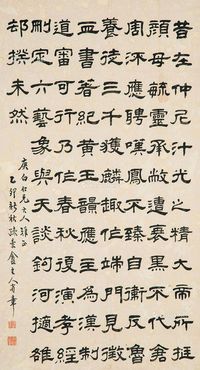 昔在仲尼汁光之精大帝所挺
顏母毓靈承敝遭衰黑不代倉
周流應聘嘆鳳不臻自衛反魯
養徒三千獲麟趣作端門見徵
血書著紀黃玉韻應主為漢制
道審可行乃作春秋復演孝經
刪定六藝象與天談鉤河擿雒
卻揆未然
庚白仁兄大人雅正
乙卯新秋